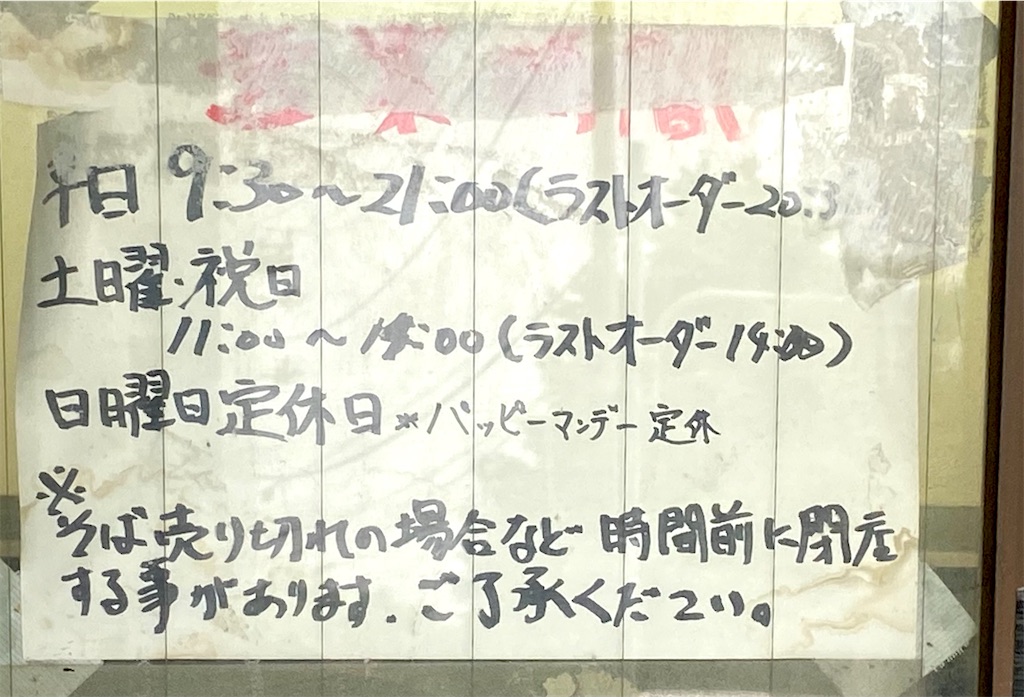 営業時間
平日 9:30〜21:00(ラストオーダー20:3
土曜・祝日
11:00〜14:00(ラストオーダー14:00)
日曜日定休日※ハッピーマンデー定休
※
そば売り切れの場合など時間前に閉店
する事があります。ご了承ください。